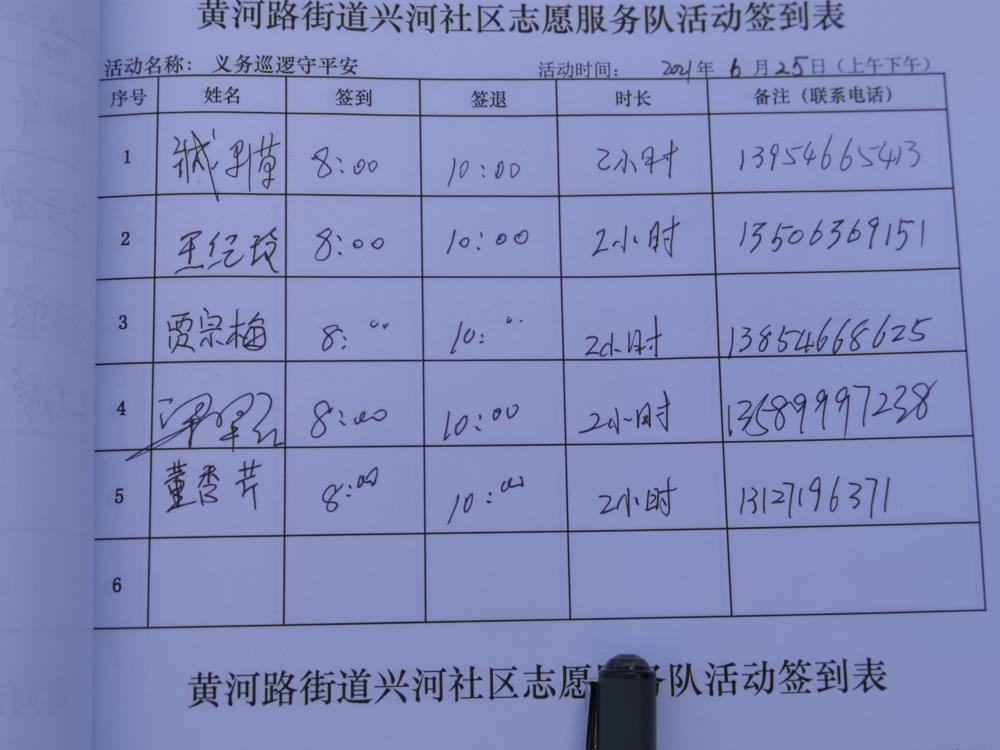 黄河路街道兴河社区志愿服务队活动签到表
活动名称： 义务巡逻守平安 活动时间： 2021年 6月25日（上午下午）
序号 姓名 签到 签退 时长 备注（联系电话）
1 8:00 10:00 2小时 13954665413
2 王纪玲 8:00 10:00 2小时 13506369151
3 贾宗梅 8:00 10:00 2小时 13854668625
4 8:00 10:00 2小时 13589997238
5 董香芹 8:00 10:00 2小时 13127196371
6
黄河路街道兴河社区志愿服务队活动签到表